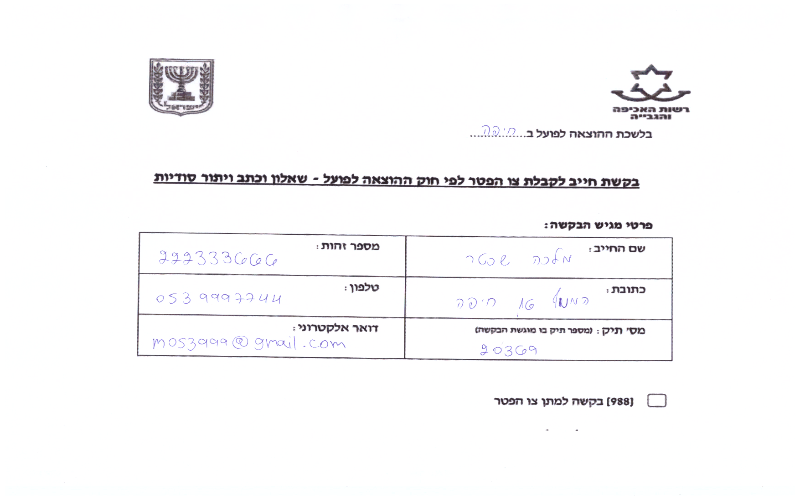 ישראל
רשות האכיפה
והגבייה
בלשכת ההוצאה לפועל ב חיפה
בקשת חייב לקבלת צו הפטר לפי חוק ההוצאה לפועל - שאלון וכתב ויתור סודיות
פרטי מגיש הבקשה:
שם החייב: מלכה שכטר
מספר זהות: 222333666
כתובת: חיפה
טלפון: 0539997744
מס' תיק: (מספר תיק בו מוגשת הבקשה) 20369
דואר אלקטרוני: m053999@gmail.com
(988) בקשה למתן צו הפטר